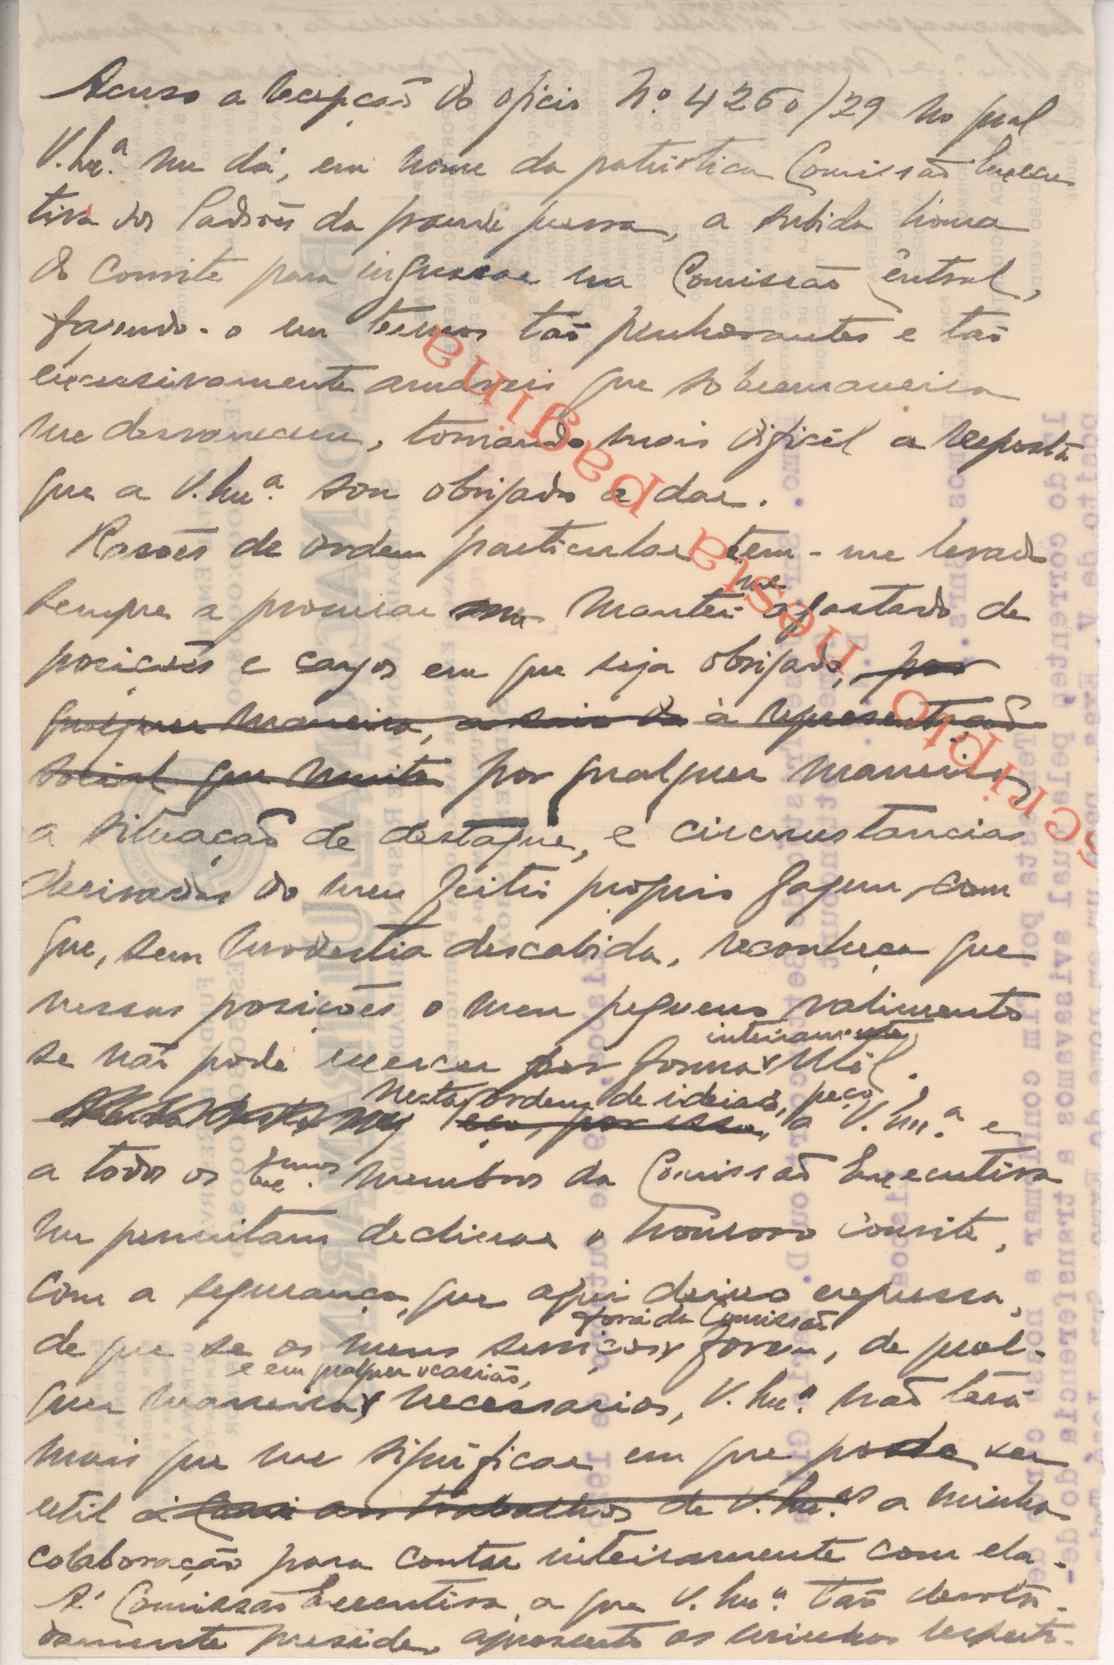 Acuso a recepção do oficio Nº. 4260/29 no qual
V. Ex.ª me dá, em nome da patriotica Comissão Execu
tiva dos Padrões da grande guerra, a subida honra
do convite para ingressar na Comissão Central,
fazendo-o em termos tão penhorantes e tão
excessivamente amaveis que sobremaneira
me desvanecem, tornando mais dificil a resposta
que a V. Ex.ª sou obrigado a dar.
Rasões de ordem particular tem-me levado
sempre a procurar me manter-me afastado de
posições e cargos em que seja obrigado, por
qualquer maneira, à representação
social que muito por qualquer maneira,
a situação de destaque, e circunstancias
derivadas do meu feitio proprio fazem com
que, sem modestia descabida, reconheça que
nessas posições o meu pequeno valimento
se não pode exercer por forma inteiramente util.
Nesta ordem de ideias, peço, por isso, a V. Ex.ª e
a todos os Exmos. membros da Comissão Executiva
me permitam declinar o honroso convite,
com a segurança, que aqui deixo expressa,
de que se os meus serviços fora da Comissão forem, de qual-
quer maneira e em qualquer ocasião, necessarios, V. Ex.ª não terá
mais que me significar em que pode ser
util aos trabalhos de V. Ex.as a minha
colaboração para contar inteiramente com ela.
A' Comissão Executiva, a que V. Ex.ª tão devota-
damente preside, apresento os minhos respeito-
scripto nesta pagina